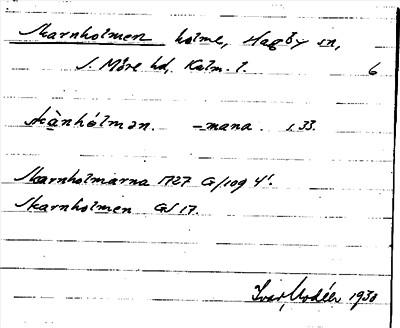 Skarnholmen holme, Hagby sn,
S. Möre hd, Kalm. l. 6
skànhólmən. -mana. s. 33.
Skarnholmarna 1727 G/109 4'.
Skarnholmen GS 17.
Ivar Modéer 1930